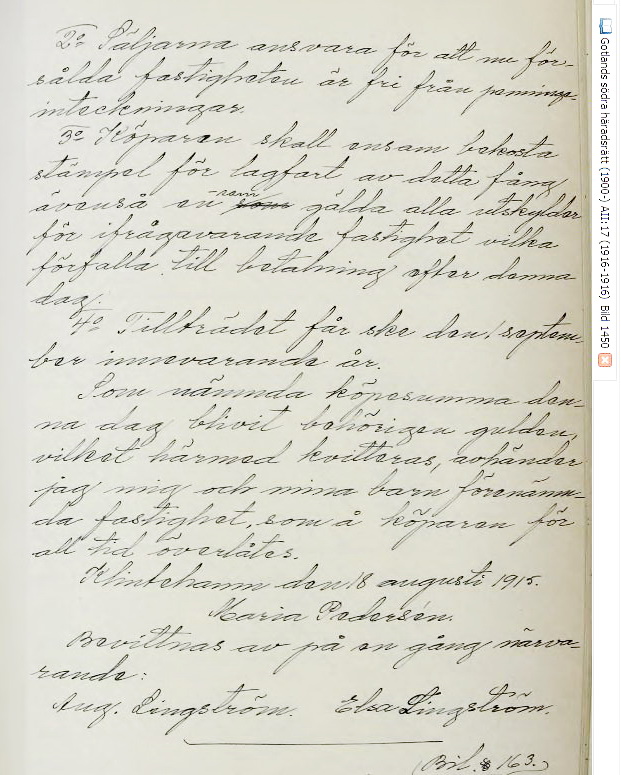 2o Säljarna ansvara för att nu för-
sålda fastigheten är fri från pennings-
inteckningar.
3o Köparen skall ensam bekosta
stämpel för lagfart av detta fång
ävenså en-sam som gälda alla utskylder
för ifrågavarande fastighet vilka
förfalla till betalning efter denna
dag.
4o Tillträdet får ske den 1 septem-
ber innevarande år.
Som nämnda köpesumma den-
na dag blivit behörigen gulden,
vilket härmed kvitteras, avhänder
jag mig och mina barn förenämn-
da fastighet, som å köparen för
all tid överlåtes.
Klintehamn den 18 augusti 1915.
Maria Pedersén.
Bevittnas av på en gång närva-
rande:
Aug. Lingström. Elsa Lingström.
(Bil. § 163.)
Gotlands södra häradsrätt (1900-) AII:17 (1916-1916) Bild 1450